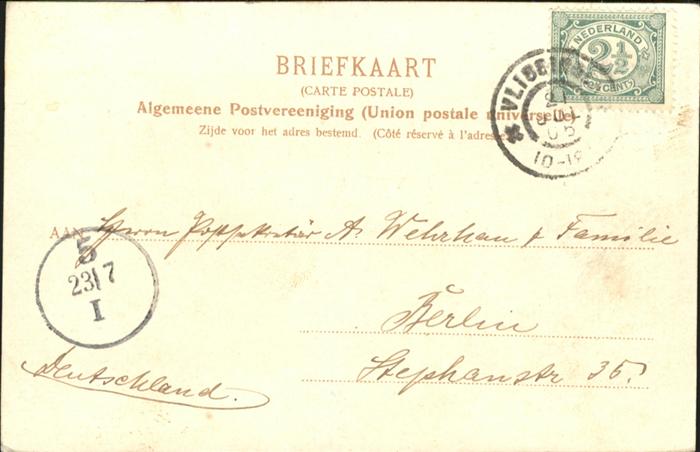 NEDERLAND
2½
(2½ CENT)
VLISSINGEN
10-12
BRIEFKAART
(CARTE POSTALE)
Algemeene Postvereeniging (Union postale universelle)
Zijde voor het adres bestemd. (Côté réservé à l'adresse)
AAN Herrn Postsekretär A. Wehrhan & Familie
Berlin
Stephanstr 35.
Deutschland.
5
23/7
I